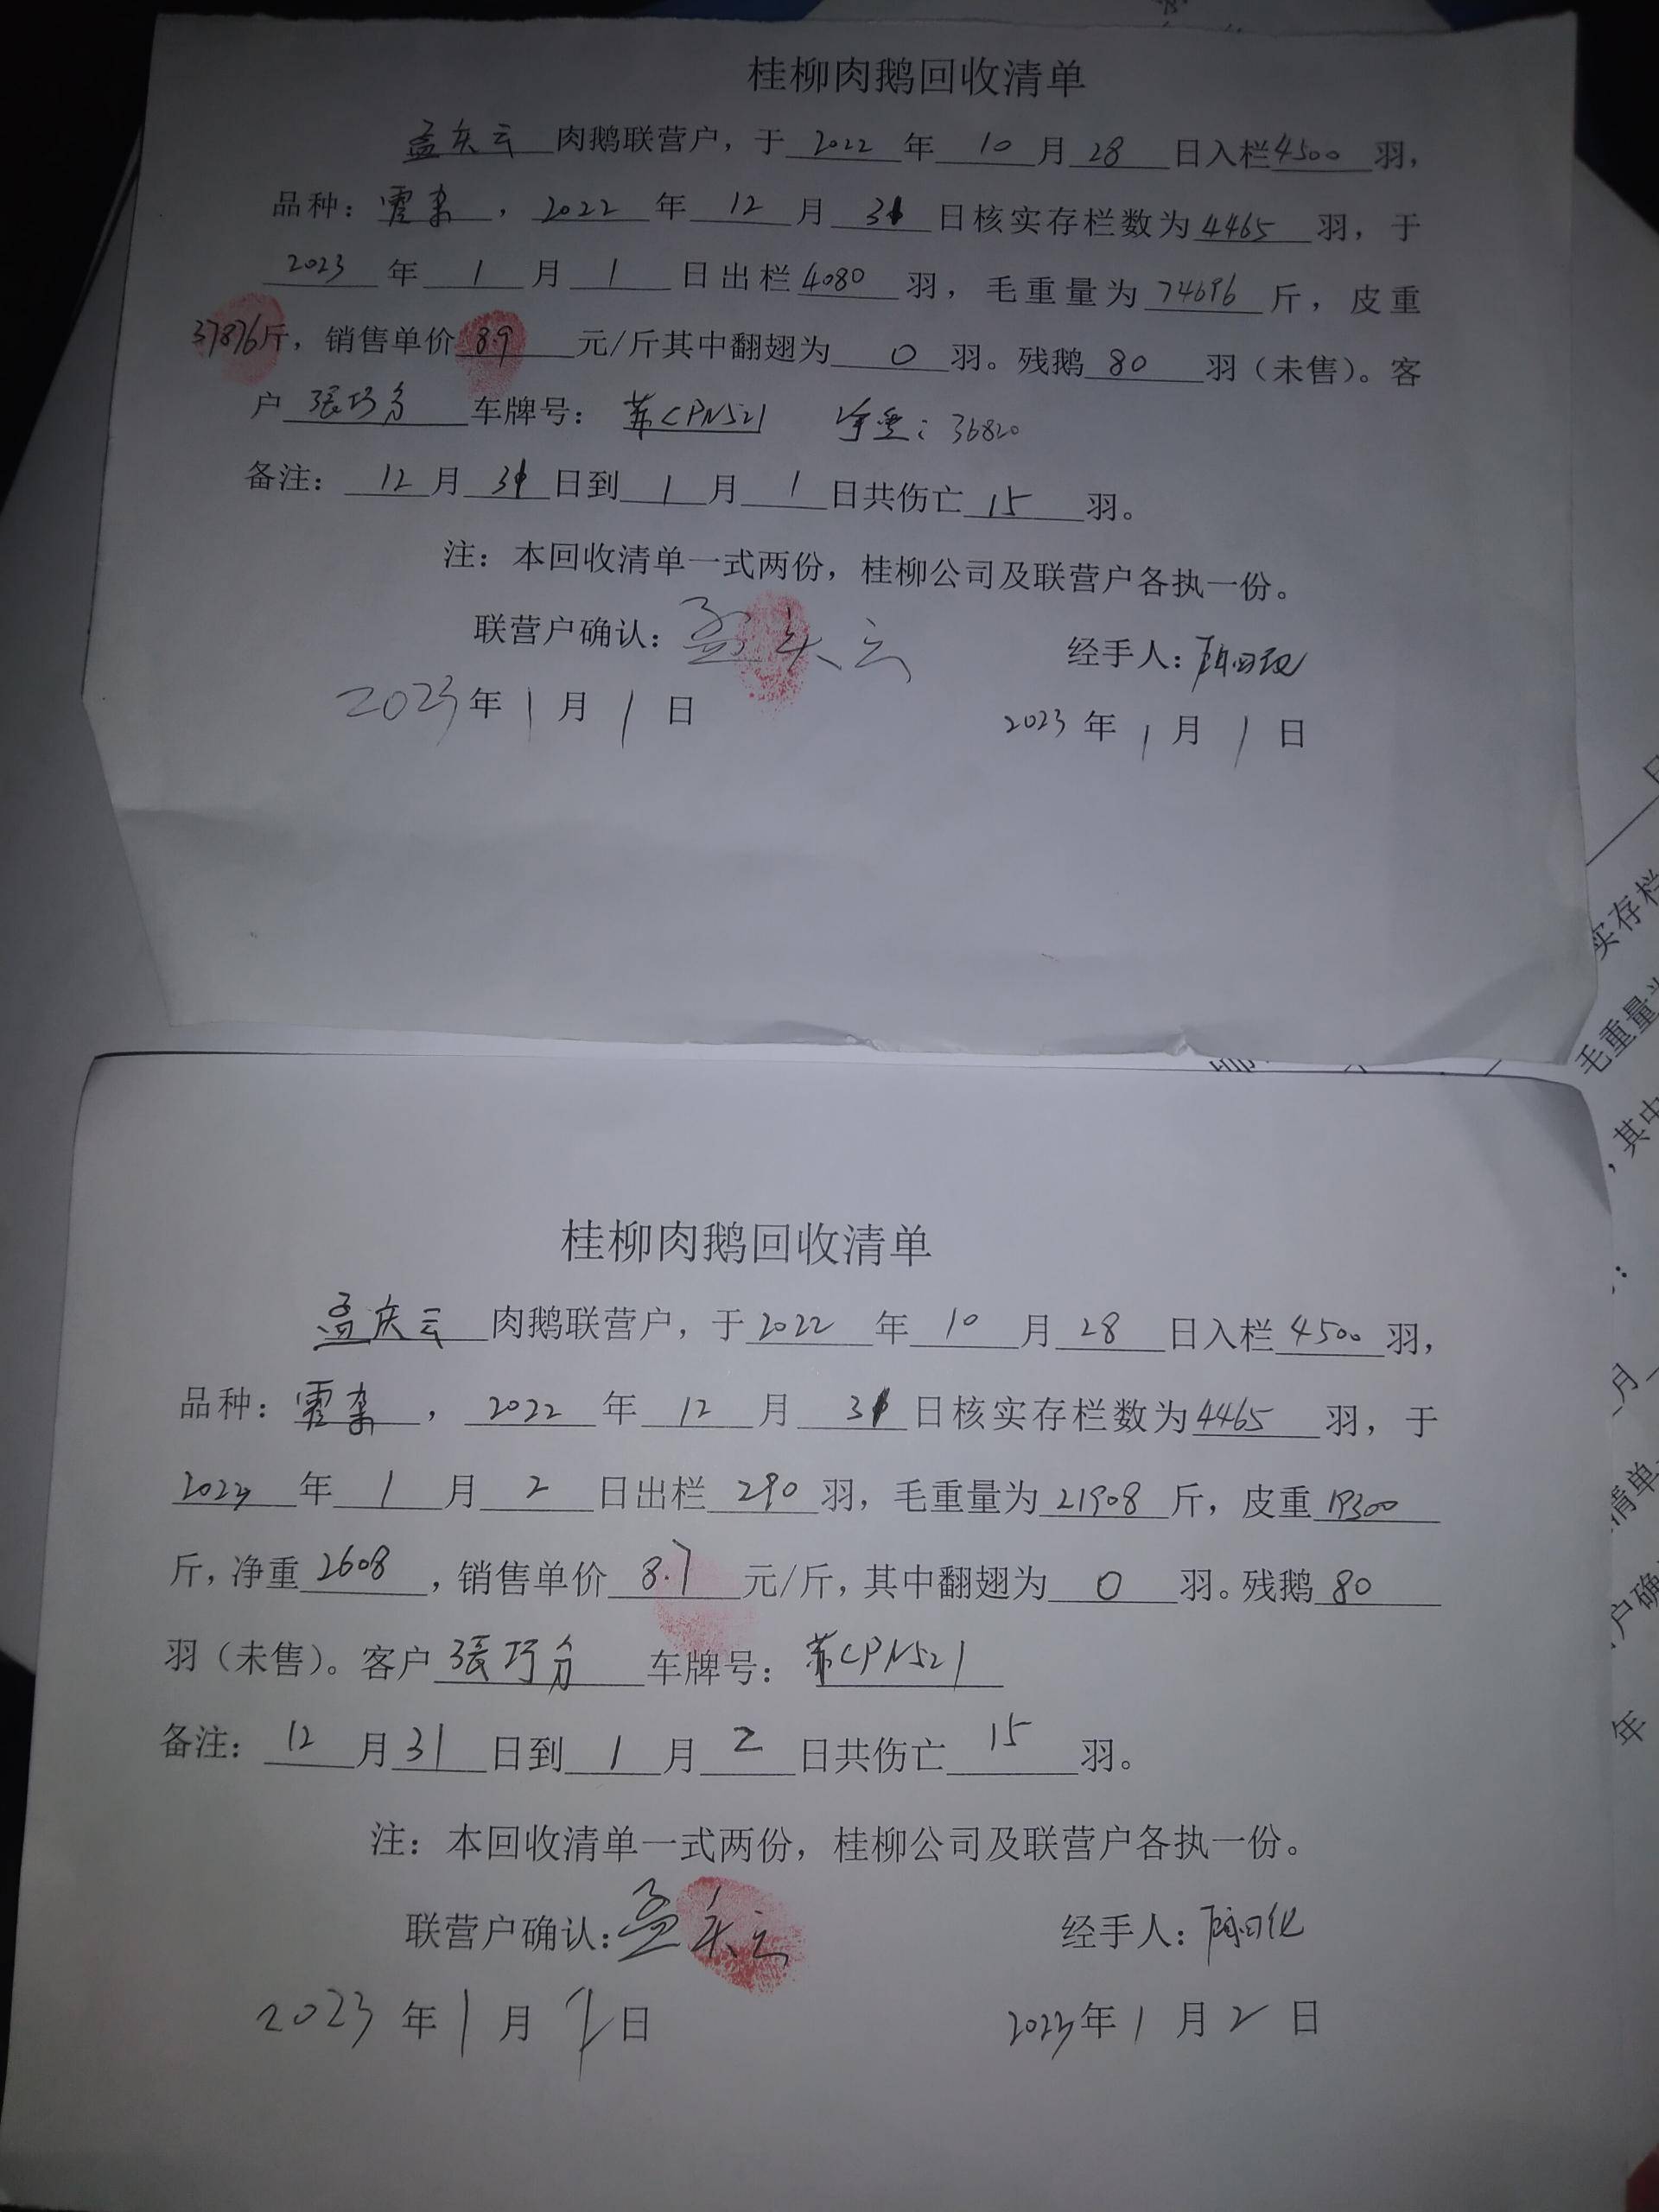 桂柳肉鹅回收清单
孟庆云 肉鹅联营户，于 2022 年 10 月 28 日入栏 4500 羽，
品种：霍杂，2022 年 12 月 31 日核实存栏数为 4465 羽，于
2023 年 1 月 1 日出栏 4080 羽，毛重量为 74696 斤，皮重
37876斤，销售单价 8.9 元/斤其中翻翅为 0 羽。残鹅 80 羽（未售）。客
户 張巧分 车牌号：苏CPN521 净重：36820
备注：12 月 31 日到 1 月 1 日共伤亡 15 羽。
注：本回收清单一式两份，桂柳公司及联营户各执一份。
联营户确认：孟庆云 经手人：
2023 年 1 月 1 日 2023 年 1 月 1 日
桂柳肉鹅回收清单
孟庆云 肉鹅联营户，于 2022 年 10 月 28 日入栏 4500 羽，
品种：霍杂，2022 年 12 月 31 日核实存栏数为 4465 羽，于
2023 年 1 月 2 日出栏 290 羽，毛重量为 21908 斤，皮重 19300
斤，净重 2608，销售单价 8.7 元/斤，其中翻翅为 0 羽。残鹅 80
羽（未售）。客户 張巧分 车牌号：苏CPN521
备注：12 月 31 日到 1 月 2 日共伤亡 15 羽。
注：本回收清单一式两份，桂柳公司及联营户各执一份。
联营户确认：孟庆云 经手人：
2023 年 1 月 2 日 2023 年 1 月 2 日
实存栏
毛重量为
，其中
月
清单
户确
年